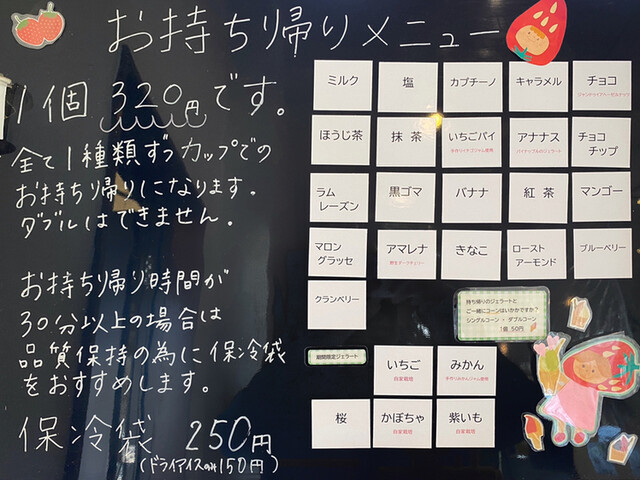 お持ち帰りメニュー
1個 320円です。
全て1種類ずつカップでの
お持ち帰りになります。
ダブルはできません。
お持ち帰り時間が
30分以上の場合は
品質保持の為に保冷袋
をおすすめします。
保冷袋 250円
(ドライアイスのみ150円)
ミルク
塩
カプチーノ
キャラメル
チョコ
ほうじ茶
抹茶
いちごパイ
手作りイチゴジャム使用
アナナス
パイナップルのジェラート
チョコ
チップ
ラム
レーズン
黒ゴマ
バナナ
紅茶
マンゴー
マロン
グラッセ
アマレナ
野生ダークチェリー
きなこ
ロースト
アーモンド
ブルーベリー
クランベリー
持ち帰りのジェラートと
ご一緒にコーンはいかがですか?
シングルコーン・ダブルコーン
1個 50円
期間限定ジェラート
いちご
自家栽培
みかん
手作りみかんジャム使用
桜
かぼちゃ
自家栽培
紫いも
自家栽培